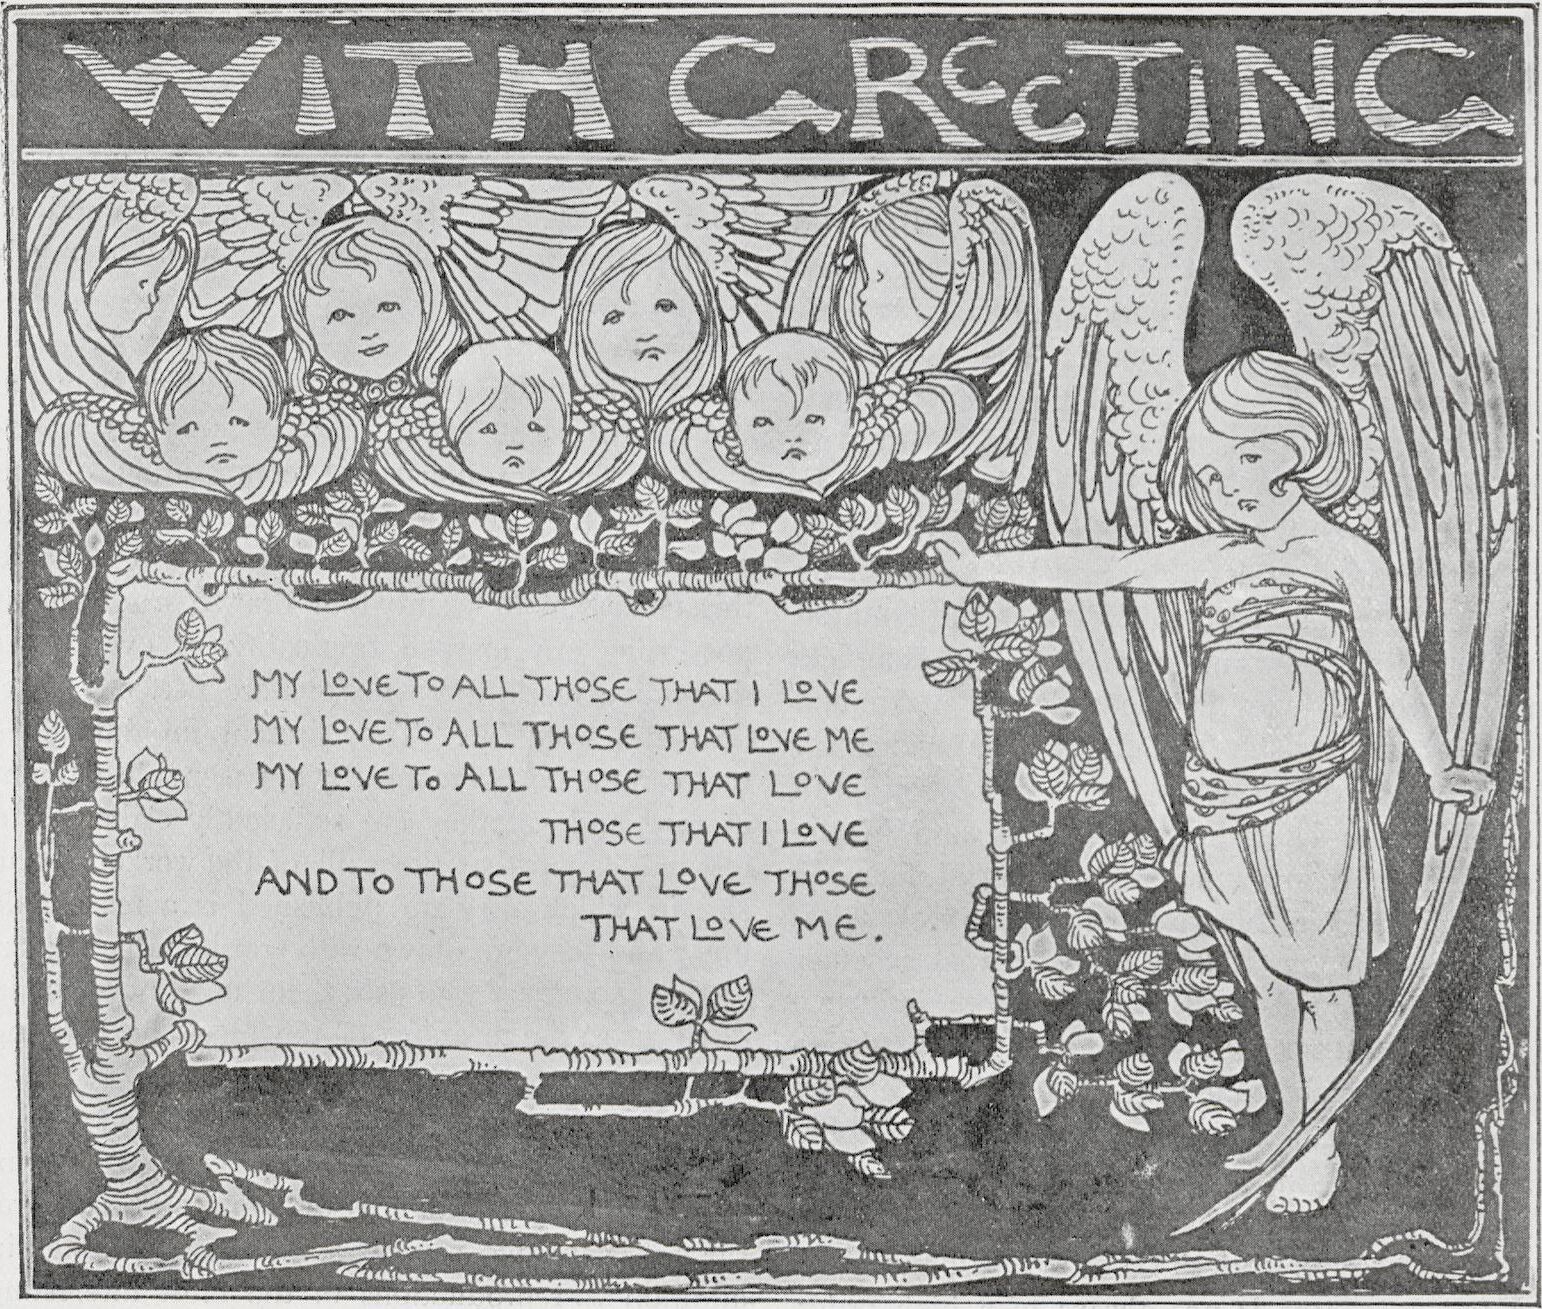 WITH GREETING
MY LOVE TO ALL THOSE THAT I LOVE
MY LOVE TO ALL THOSE THAT LOVE ME
MY LOVE TO ALL THOSE THAT LOVE
THOSE THAT I LOVE
AND TO THOSE THAT LOVE THOSE
THAT LOVE ME.